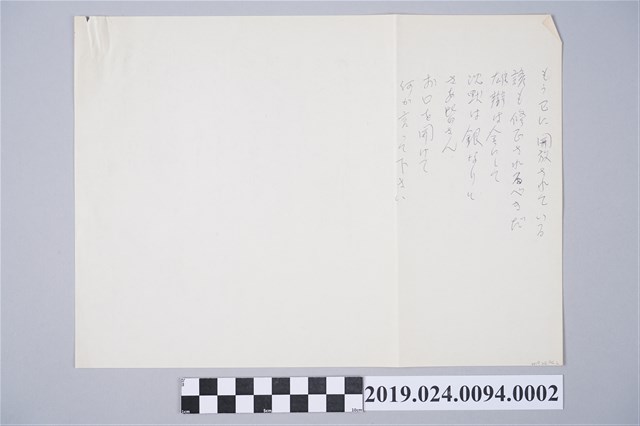 もう已に開放されている
諺も修正されるべきだ
雄辯は金にして
沈默は銀なりと
さあ皆さん
お口を開けて
何か言って下さい
2019.024.0094.0002